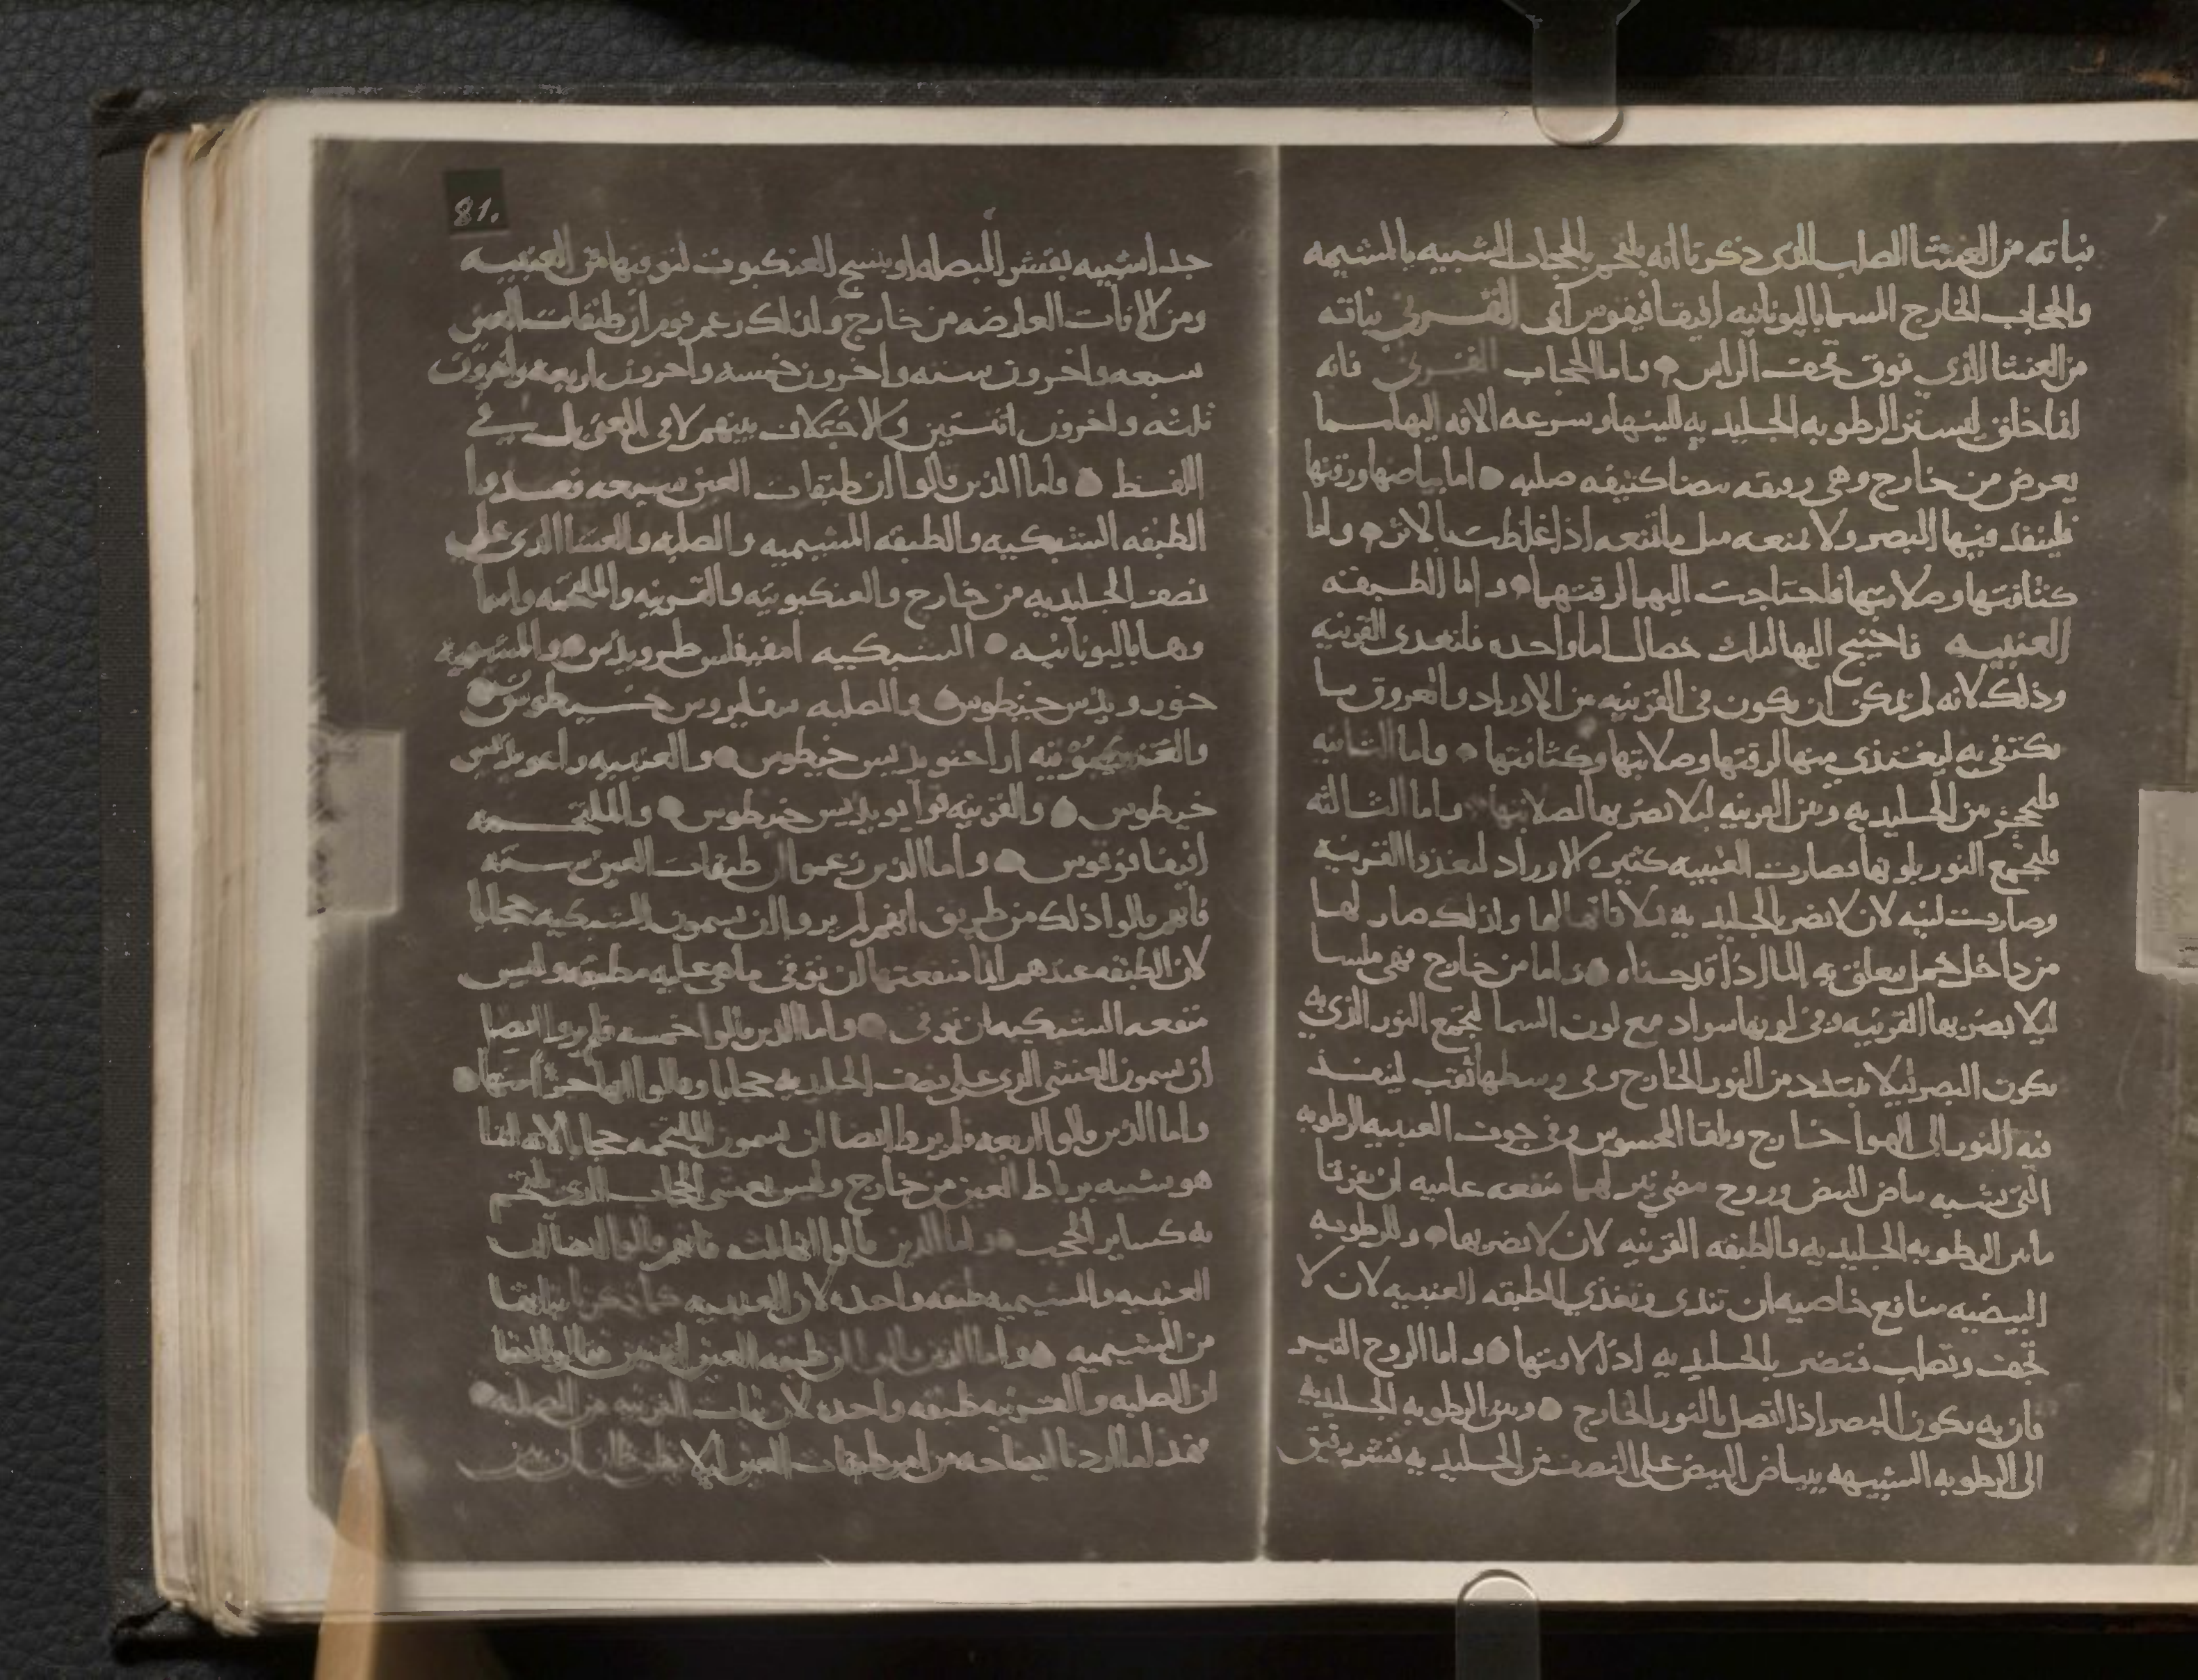 نباته من الغشا الصلب الذي ذكرنا انه يلتحم بالحجاب الشبيه بالمشيمه
والحجاب الخارج المسما باليونانيه افيفافيقوس اي القرني نباته
من الغشا الذي فوق قحف الراس واما الحجاب القرني فانه
انما خلق ليستر الرطوبه الجليديه للينها وسرعه الافه اليها مما
يعرض من خارج وهي رقيقه بيضا كثيفه صلبه اما بياضها ورقتها
فلينفذ فيها البصر ولا تمنعه مثل ما تمنعه اذا غلظت بالاثر واما
كثافتها وصلابتها فاحتاجت اليهما لرقتهما واما الطبقه
العنبيه فاحتيج اليها لثلث خصال اما واحده فلتغدي القرنيه
وذلك لانه لم يمكن ان يكون في القرنيه من الاوراد والعروق ما
يكتفي به ليغتذي منها لرقتها وصلابتها وكثافتها واما الثانيه
فلتحجز بين الجليديه وبين القرنيه ليلا تضر بها لصلابتها واما الثالثه
فليجمع النور بلونها فصارت العنبيه كثيره الاوراد لتغذوا القرنيه
وصارت لينه لان لا تضر بالجليديه بملاقاتها لها ولذلك صار لها
من داخل خمل يتعلق به الما اذا قدحناه واما من خارج فهي ملسا
ليلا تضر بها القرنيه وفي لونها سواد مع لون السما ليجتمع النور الذي به
يكون البصر ليلا يتبدد من النور الخارج وفي وسطها ثقب لينفذ
فيه النور الى الهوا خارج ويلقا المحسوس وفي جوف العنبيه الرطوبه
التي تشبه بياض البيض وروح مضي نير لهما منفعه عاميه ان يفرقا
ما بين الرطوبه الجليديه والطبقه القرنيه لان لا تضر بها وللرطوبه
البيضيه منافع خاصيه ان تندى وتغذي الطبقه العنبيه لان لا
تجف وتصلب فتضر بالجليديه اذا لاقتها واما الروح النير
فان به يكون البصر اذا اتصل بالنور الخارج وبين الرطوبه الجليديه
الى الرطوبه الشبيهه ببياض البيض على النصف من الجليديه قشر رقيق
81.
جدا شبيه بقشر البصله او بنسج العنكبوت لتوقيها من العنبيه
ومن الافات العارضه من خارج ولذلك زعم قوم ان طبقات العين
سبعه واخرون سته واخرون خمسه واخرون اربعه واخرون
ثلثه واخرون اثنتين والاختلاف بينهم لا في المعنى بل في
اللفظ واما الذين قالوا ان طبقات العين سبعه فعدوا
الطبقه الشبكيه والطبقه المشيميه والصلبه والغشا الذي على
نصف الجليديه من خارج والعنكبوتيه والقرنيه والملتحمه واسما
وها باليونانيه الشبكيه امفيقلس طرويدس والمشيميه
خورويدس خيطوس والصلبه سقليروس خيطوس
والعنكبوتيه اراخنويديس خيطوس والعنبيه راغويديس
خيطوس والقرنيه قرآيويديس خيطوس والملتحمه
افيفافوقوس واما الذين زعموا ان طبقات العين سته
فانهم قالوا ذلك من طريق انهم لم يروا ان يسموا الشبكيه حجابا
لان الطبقه عندهم انما منفعتها ان توقى ما هي عليه مطبقه وليس
منفعه الشبكيه ان توقى واما الذين قالوا خمسه فلم يروا ايضا
ان يسموا الغشى الذي على نصف الجليديه حجابا وقالوا انها جزء منها
واما الذين قالوا اربعه فلم يروا ايضا ان يسموا الملتحمه حجابا لانه انما
هو شبيه برباط العين من خارج وليس يغشى الحجاب الذي يلتحم
به كساير الحجب واما الذين قالوا انها ثلثه فانهم قالوا ايضا ان
العنبيه والمشيميه طبقه واحده لان العنبيه كما ذكرنا نباتها
من المشيميه واما الذين قالوا ان طبقه العين اثنتين فقالوا ايضا
ان الصلبه والقرنيه طبقه واحده لان نبات القرنيه من الصلبه
فهذا ما اردنا ايضاحه من امر طبقات العين ليلا يظن ظان ان بين